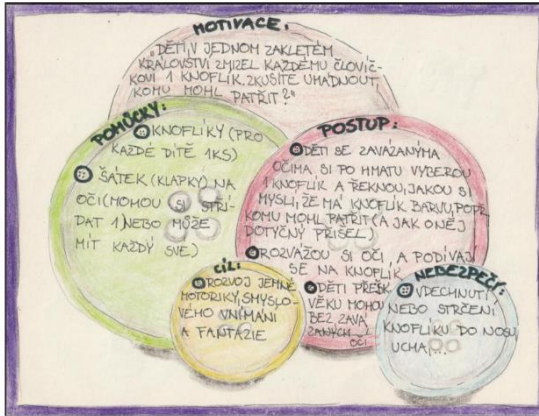 MOTIVACE:
„DĚTI, V JEDNOM ZAKLETÉM
KRÁLOVSTVÍ ZMIZEL KAŽDÉMU ČLOVÍČ-
KOVI 1 KNOFLÍK. ZKUSÍTE UHÁDNOUT,
KOMU MOHL PATŘIT?"
POMŮCKY:
KNOFLÍKY (PRO
KAŽDÉ DÍTĚ 1KS)
ŠÁTEK (KLAPKY) NA
OČI (MOHOU SI STŘÍ-
DAT 1) NEBO MŮŽE
MÍT KAŽDÝ SVÉ)
POSTUP:
DĚTI SE ZAVÁZANÝMA
OČIMA, SI PO HMATU VYBEROU
1 KNOFLÍK A ŘEKNOU, JAKOU SI
MYSLÍ, ŽE MÁ KNOFLÍK BARVU, POPŘ.
KOMU MOHL PATŘIT (A JAK O NĚJ
DOTYČNÝ PŘIŠEL)
ROZVÁŽOU SI OČI, A PODÍVAJÍ
SE NA KNOFLÍK
DĚTI PŘEŠK.
VĚKU MOHOU
BEZ ZAVÁ
ZANÝCH
OČÍ
CÍL:
ROZVOJ JEMNÉ
MOTORIKY, SMYSLO-
VÉHO VNÍMÁNÍ
A FANTAZIE
NEBEZPEČÍ:
VDECHNUTÍ
NEBO STRČENÍ
KNOFLÍKU DO NOSU,
UCHA,...